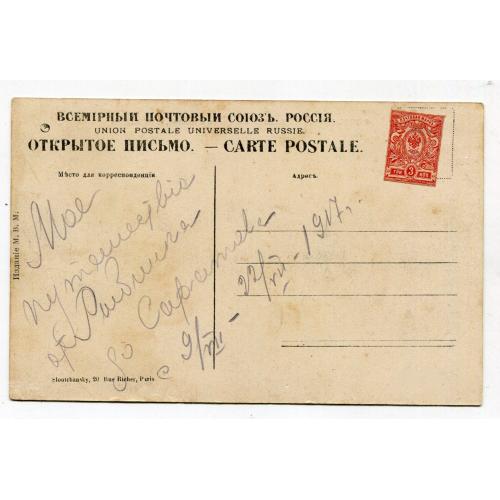 ВСЕМІРНЫЙ ПОЧТОВЫЙ СОЮЗЪ. РОССІЯ.
UNION POSTALE UNIVERSELLE RUSSIE.
ОТКРЫТОЕ ПИСЬМО. — CARTE POSTALE.
Мѣсто для корреспонденціи
Адресъ.
Мое
путешествіе
от Рыбинска
до Саратова
с 9/VII — 22/VII — 1917 г.
Изданіе М. В. М.
Sloutchansky, 20 Rue Richer, Paris
ТРИ 3 КОП